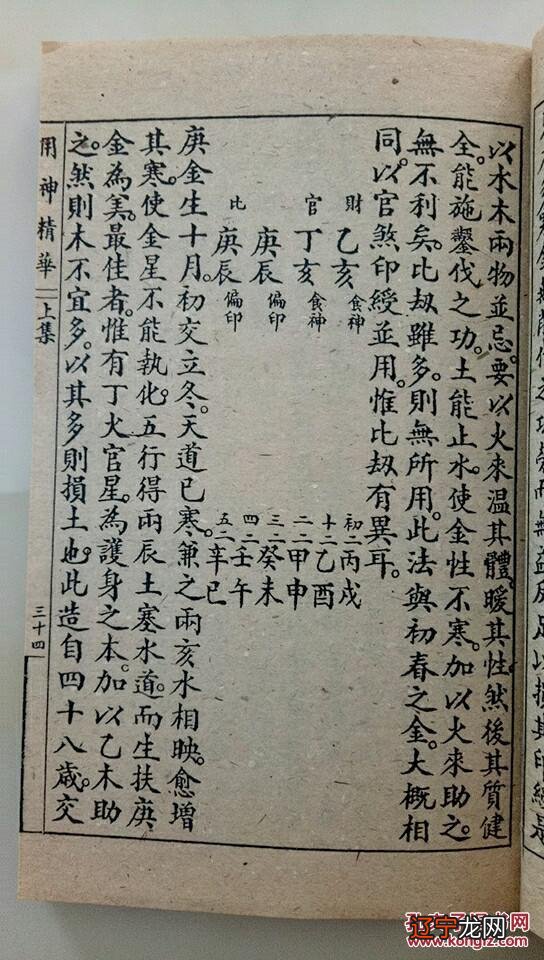 以水木兩物並忌。要以火來温其體。暖其性。然後其質健
全。能施鑿伐之功。土能止水。使金性不寒。加以火來助之。
無不利矣。比刼雖多。則無所用。此法與初春之金。大概相
同。以官煞印綬並用。惟比刼有異耳。
財 乙亥 食神
官 丁亥 食神
庚辰 偏印
比 庚辰 偏印
初二 丙戌
十二 乙酉
二二 甲申
三二 癸未
四二 壬午
五二 辛巳
庚金生十月。初交立冬。天道已寒。兼之兩亥水相映。愈增
其寒。使金星不能執化。五行得兩辰土塞水道。而生扶庚
金為美。最佳者。惟有丁火官星。為護身之本。加以乙木助
之。然則木不宜多。以其多則損土也。此造自四十八歲。交
用神精華 上集 三十四
辽宁龙网
www.kongfz.com